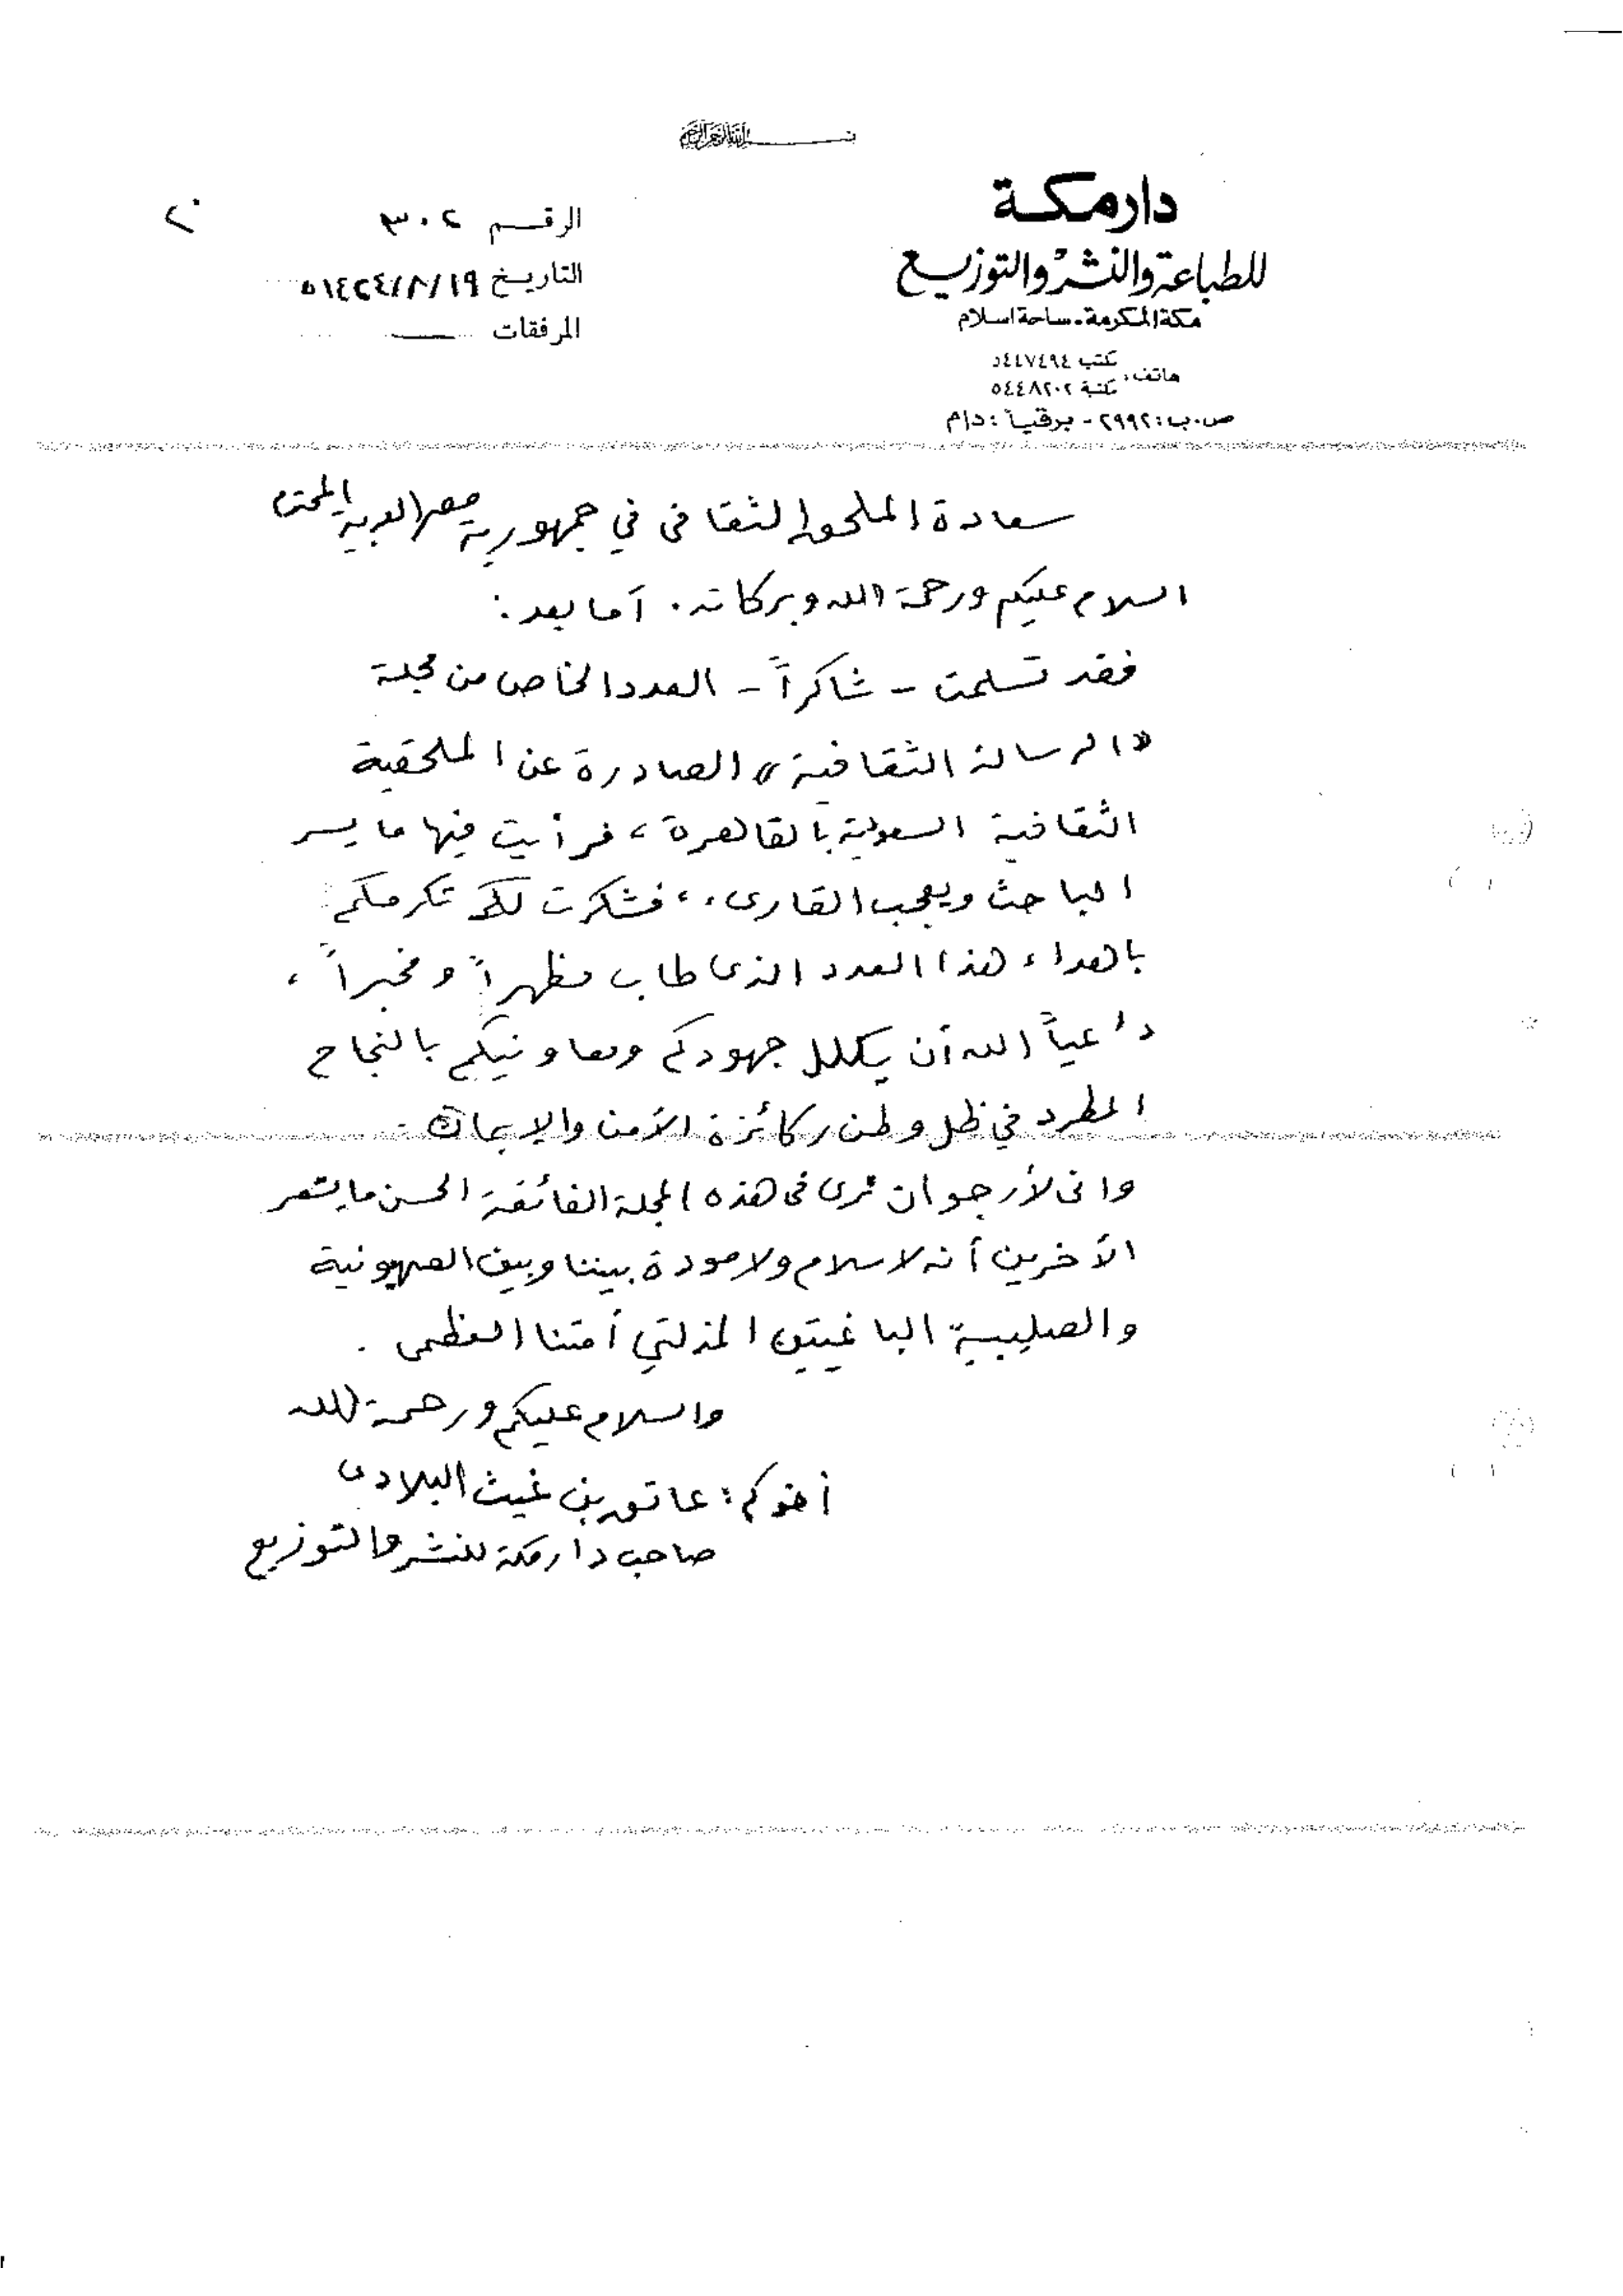 بسم الله الرحمن الرحيم
دار مكة
للطباعة والنشر والتوزيع
مكة المكرمة - ساحة اسلام
هاتف: مكتب ٥٤٤٧٤٩٤
مكتبة ٥٤٤٨٢٠٢
ص.ب: ٢٩٩٢ - برقياً: دام
الرقم ٣٠٢
التاريخ ١٤٢٤/٨/١٩ه
المرفقات ــــ
سعادة الملحق الثقافى في جمهورية مصر العربية المحترم
السلام عليكم ورحمة الله وبركاته. أما بعد:
فقد تسلمت - شاكراً - العدد الخاص من مجلة
«الرسالة الثقافية» الصادرة عن الملحقية
الثقافية السعودية بالقاهرة، فرأيت فيها ما يسر
الباحث ويعجب القارىء، فشكرت لكم تكرمكم
باهداء هذا العدد الذى طاب مظهراً ومخبراً،
داعياً الله أن يكلل جهودكم ومعاونيكم بالنجاح
المطرد في ظل وطن ركائزه الأمن والإيمان.
وانى لأرجو ان نرى فى هذه المجلة الفائقة الحسن ما يشعر
الآخرين أنه لا سلام ولا مودة بيننا وبين الصهيونية
والصليبية الباغيتين المذلتي أمتنا العظمى.
والسلام عليكم ورحمة الله
أخوكم: عاتق بن غيث البلادى
صاحب دار مكة للنشر والتوزيع